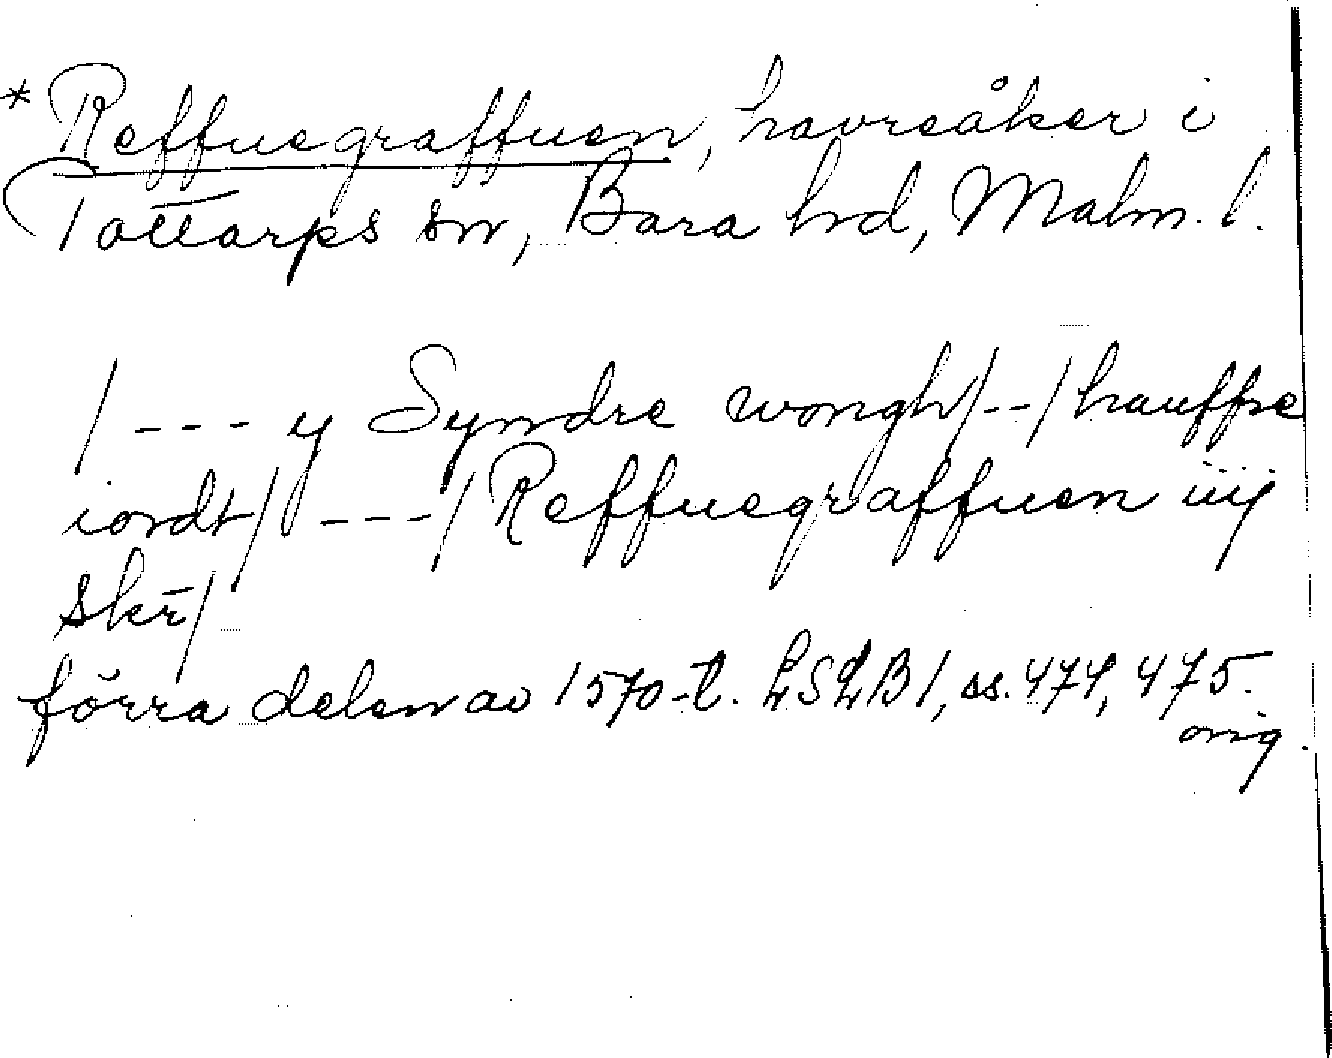 * Reffuegraffuen, havreåker i
Tottarps sn, Bara hd, Malm. l.
/ - - - y Syndre wongh/ - - / hauffre
iordt/ - - - / Reffuegraffuen iiij
skr̄/
förra delen av 1570-t. LSLB 1, ss. 474, 475.
orig.